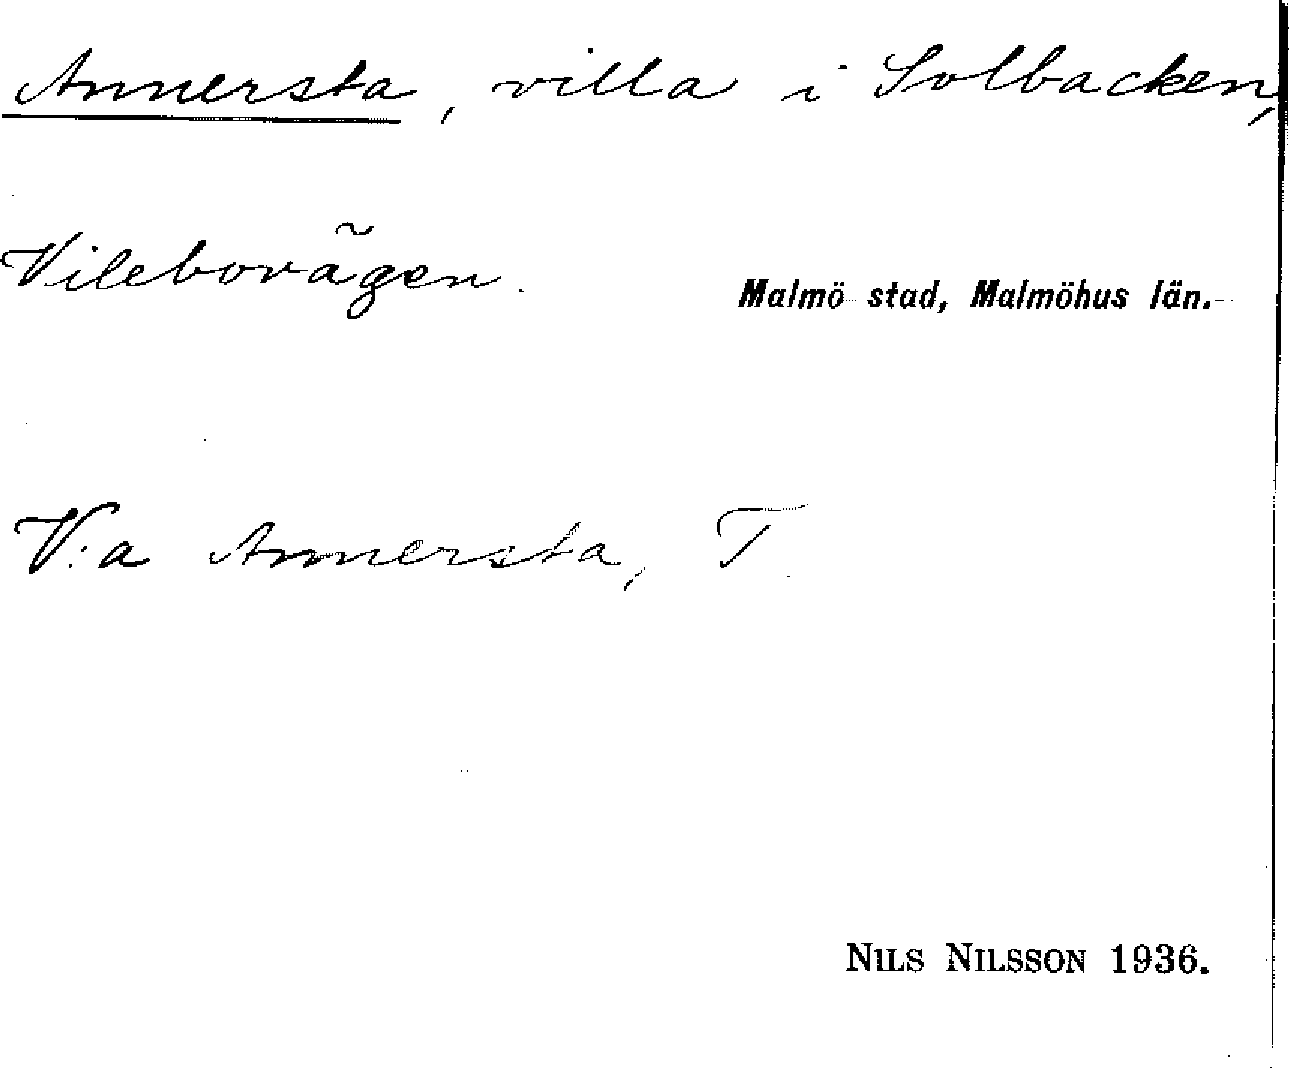 Annersta, villa i Solbacken,
Vilebovägen. Malmö stad, Malmöhus län.
V:a Annersta, T.
NILS NILSSON 1936.